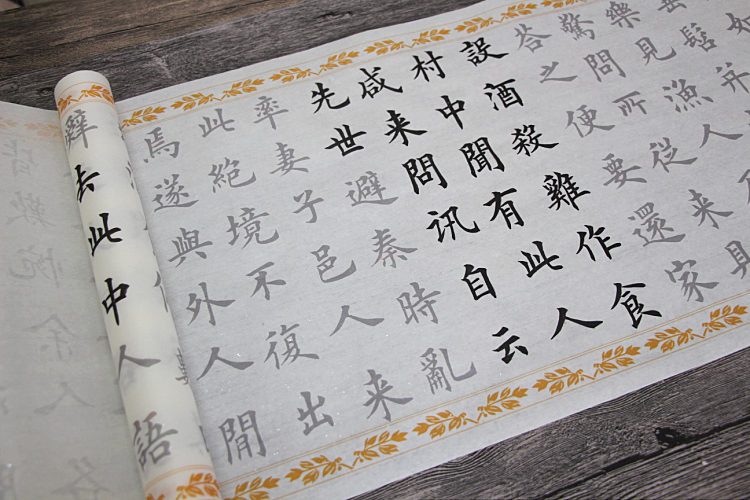 如
垂髫并
樂見漁人乃
驚問所從来具
荅之便要還家
設酒殺雞作食
村中聞有此人
咸来問讯自云
先世避秦時亂
率妻子邑人来
此絶境不復出
焉遂與外人閒
辭去此中人語
皆歎惋余人各